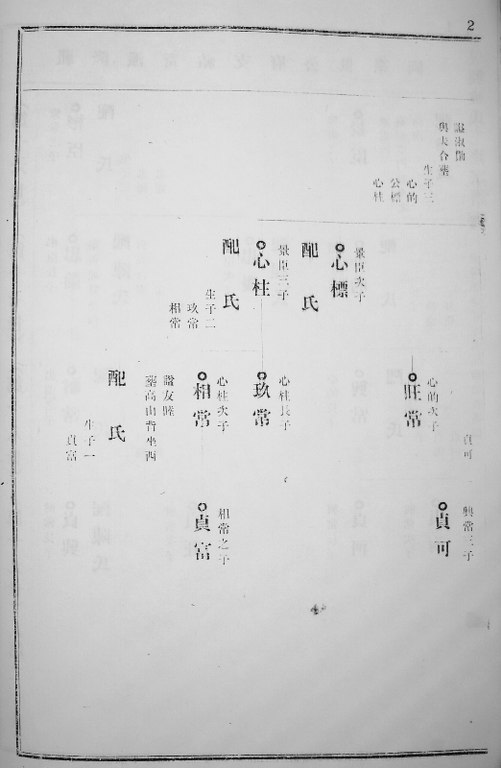 2
諡淑勤
與夫合塋
生子三
心的
公標
心桂
景臣次子
心標
配氏
景臣三子
心柱
配氏
生子二
玖常
相常
心的次子
旺常
心桂長子
玖常
心柱次子
相常
諡友睦
塋高山背坐西
配氏
生子一
貞富
貞可
興常三子
貞可
相常之子
貞富